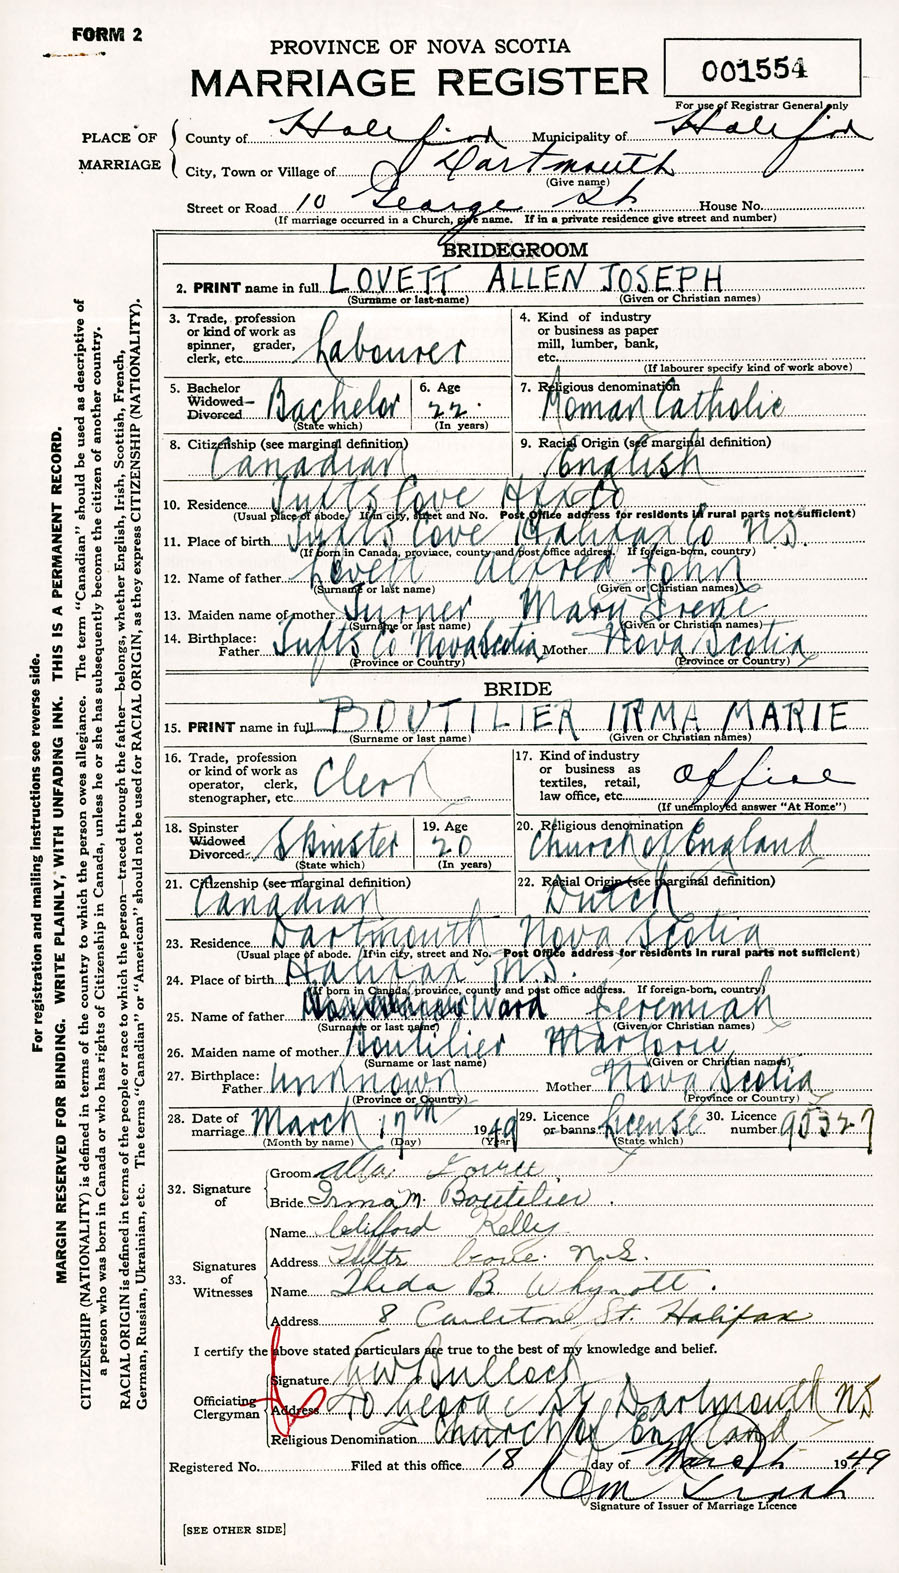 FORM 2
PROVINCE OF NOVA SCOTIA
MARRIAGE REGISTER
001554
For use of Registrar General only
PLACE OF MARRIAGE
County of Halifax Municipality of Halifax
City, Town or Village of Dartmouth
(Give name)
Street or Road 10 George St House No.
(If marriage occurred in a Church, give name. If in a private residence give street and number)
BRIDEGROOM
2. PRINT name in full LOVETT ALLEN JOSEPH
(Surname or last name) (Given or Christian names)
3. Trade, profession or kind of work as spinner, grader, clerk, etc. Labourer
4. Kind of industry or business as paper mill, lumber, bank, etc.
(If labourer specify kind of work above)
5. Bachelor Widowed Divorced Bachelor
(State which)
6. Age 22
(In years)
7. Religious denomination Roman Catholic
8. Citizenship (see marginal definition) Canadian
9. Racial Origin (see marginal definition) English
10. Residence Tufts Cove Hfx Co
(Usual place of abode. If in city, street and No. Post Office address for residents in rural parts not sufficient)
11. Place of birth Tufts Cove Halifax Co N.S.
(If born in Canada, province, county and post office address. If foreign-born, country)
12. Name of father Lovett Alfred John
(Surname or last name) (Given or Christian names)
13. Maiden name of mother Turner Mary Irene
(Surname or last name) (Given or Christian names)
14. Birthplace: Father Tufts Co Nova Scotia Mother Nova Scotia
(Province or Country) (Province or Country)
BRIDE
15. PRINT name in full BOUTILIER IRMA MARIE
(Surname or last name) (Given or Christian names)
16. Trade, profession or kind of work as operator, clerk, stenographer, etc. Clerk
17. Kind of industry or business as textiles, retail, law office, etc. Office
(If unemployed answer "At Home")
18. Spinster Widowed Divorced Spinster
(State which)
19. Age 20
(In years)
20. Religious denomination Church of England
21. Citizenship (see marginal definition) Canadian
22. Racial Origin (see marginal definition) Dutch
23. Residence Dartmouth Nova Scotia
(Usual place of abode. If in city, street and No. Post Office address for residents in rural parts not sufficient)
24. Place of birth Halifax N.S.
(If born in Canada, province, county and post office address. If foreign-born, country)
25. Name of father Ward Jeremiah
(Surname or last name) (Given or Christian names)
26. Maiden name of mother Boutilier Marjorie
(Surname or last name) (Given or Christian names)
27. Birthplace: Father Unknown Mother Nova Scotia
(Province or Country) (Province or Country)
28. Date of marriage March 17th 1949
(Month by name) (Day) (Year)
29. Licence or banns License
(State which)
30. Licence number 95327
32. Signature of
Groom Lovett
Bride Irma M. Boutilier
33. Signatures of Witnesses
Name Clifford Kelly
Address Cove N.S.
Name Theda B Whynott
Address 8 Carleton St. Halifax
I certify the above stated particulars are true to the best of my knowledge and belief.
Officiating Clergyman
Signature Bullock
Address 10 George St Dartmouth NS
Religious Denomination Church of England
Registered No. Filed at this office 18 day of March 1949
Signature of Issuer of Marriage Licence
[SEE OTHER SIDE]
For registration and mailing instructions see reverse side.
MARGIN RESERVED FOR BINDING. WRITE PLAINLY, WITH UNFADING INK. THIS IS A PERMANENT RECORD.
CITIZENSHIP (NATIONALITY) is defined in terms of the country to which the person owes allegiance. The term "Canadian" should be used as descriptive of
a person who was born in Canada or who has rights of Citizenship in Canada, unless he or she has subsequently become the citizen of another country.
RACIAL ORIGIN is defined in terms of the people or race to which the person—traced through the father—belongs, whether English, Irish, Scottish, French,
German, Russian, Ukrainian, etc. The terms "Canadian" or "American" should not be used for RACIAL ORIGIN, as they express CITIZENSHIP (NATIONALITY).